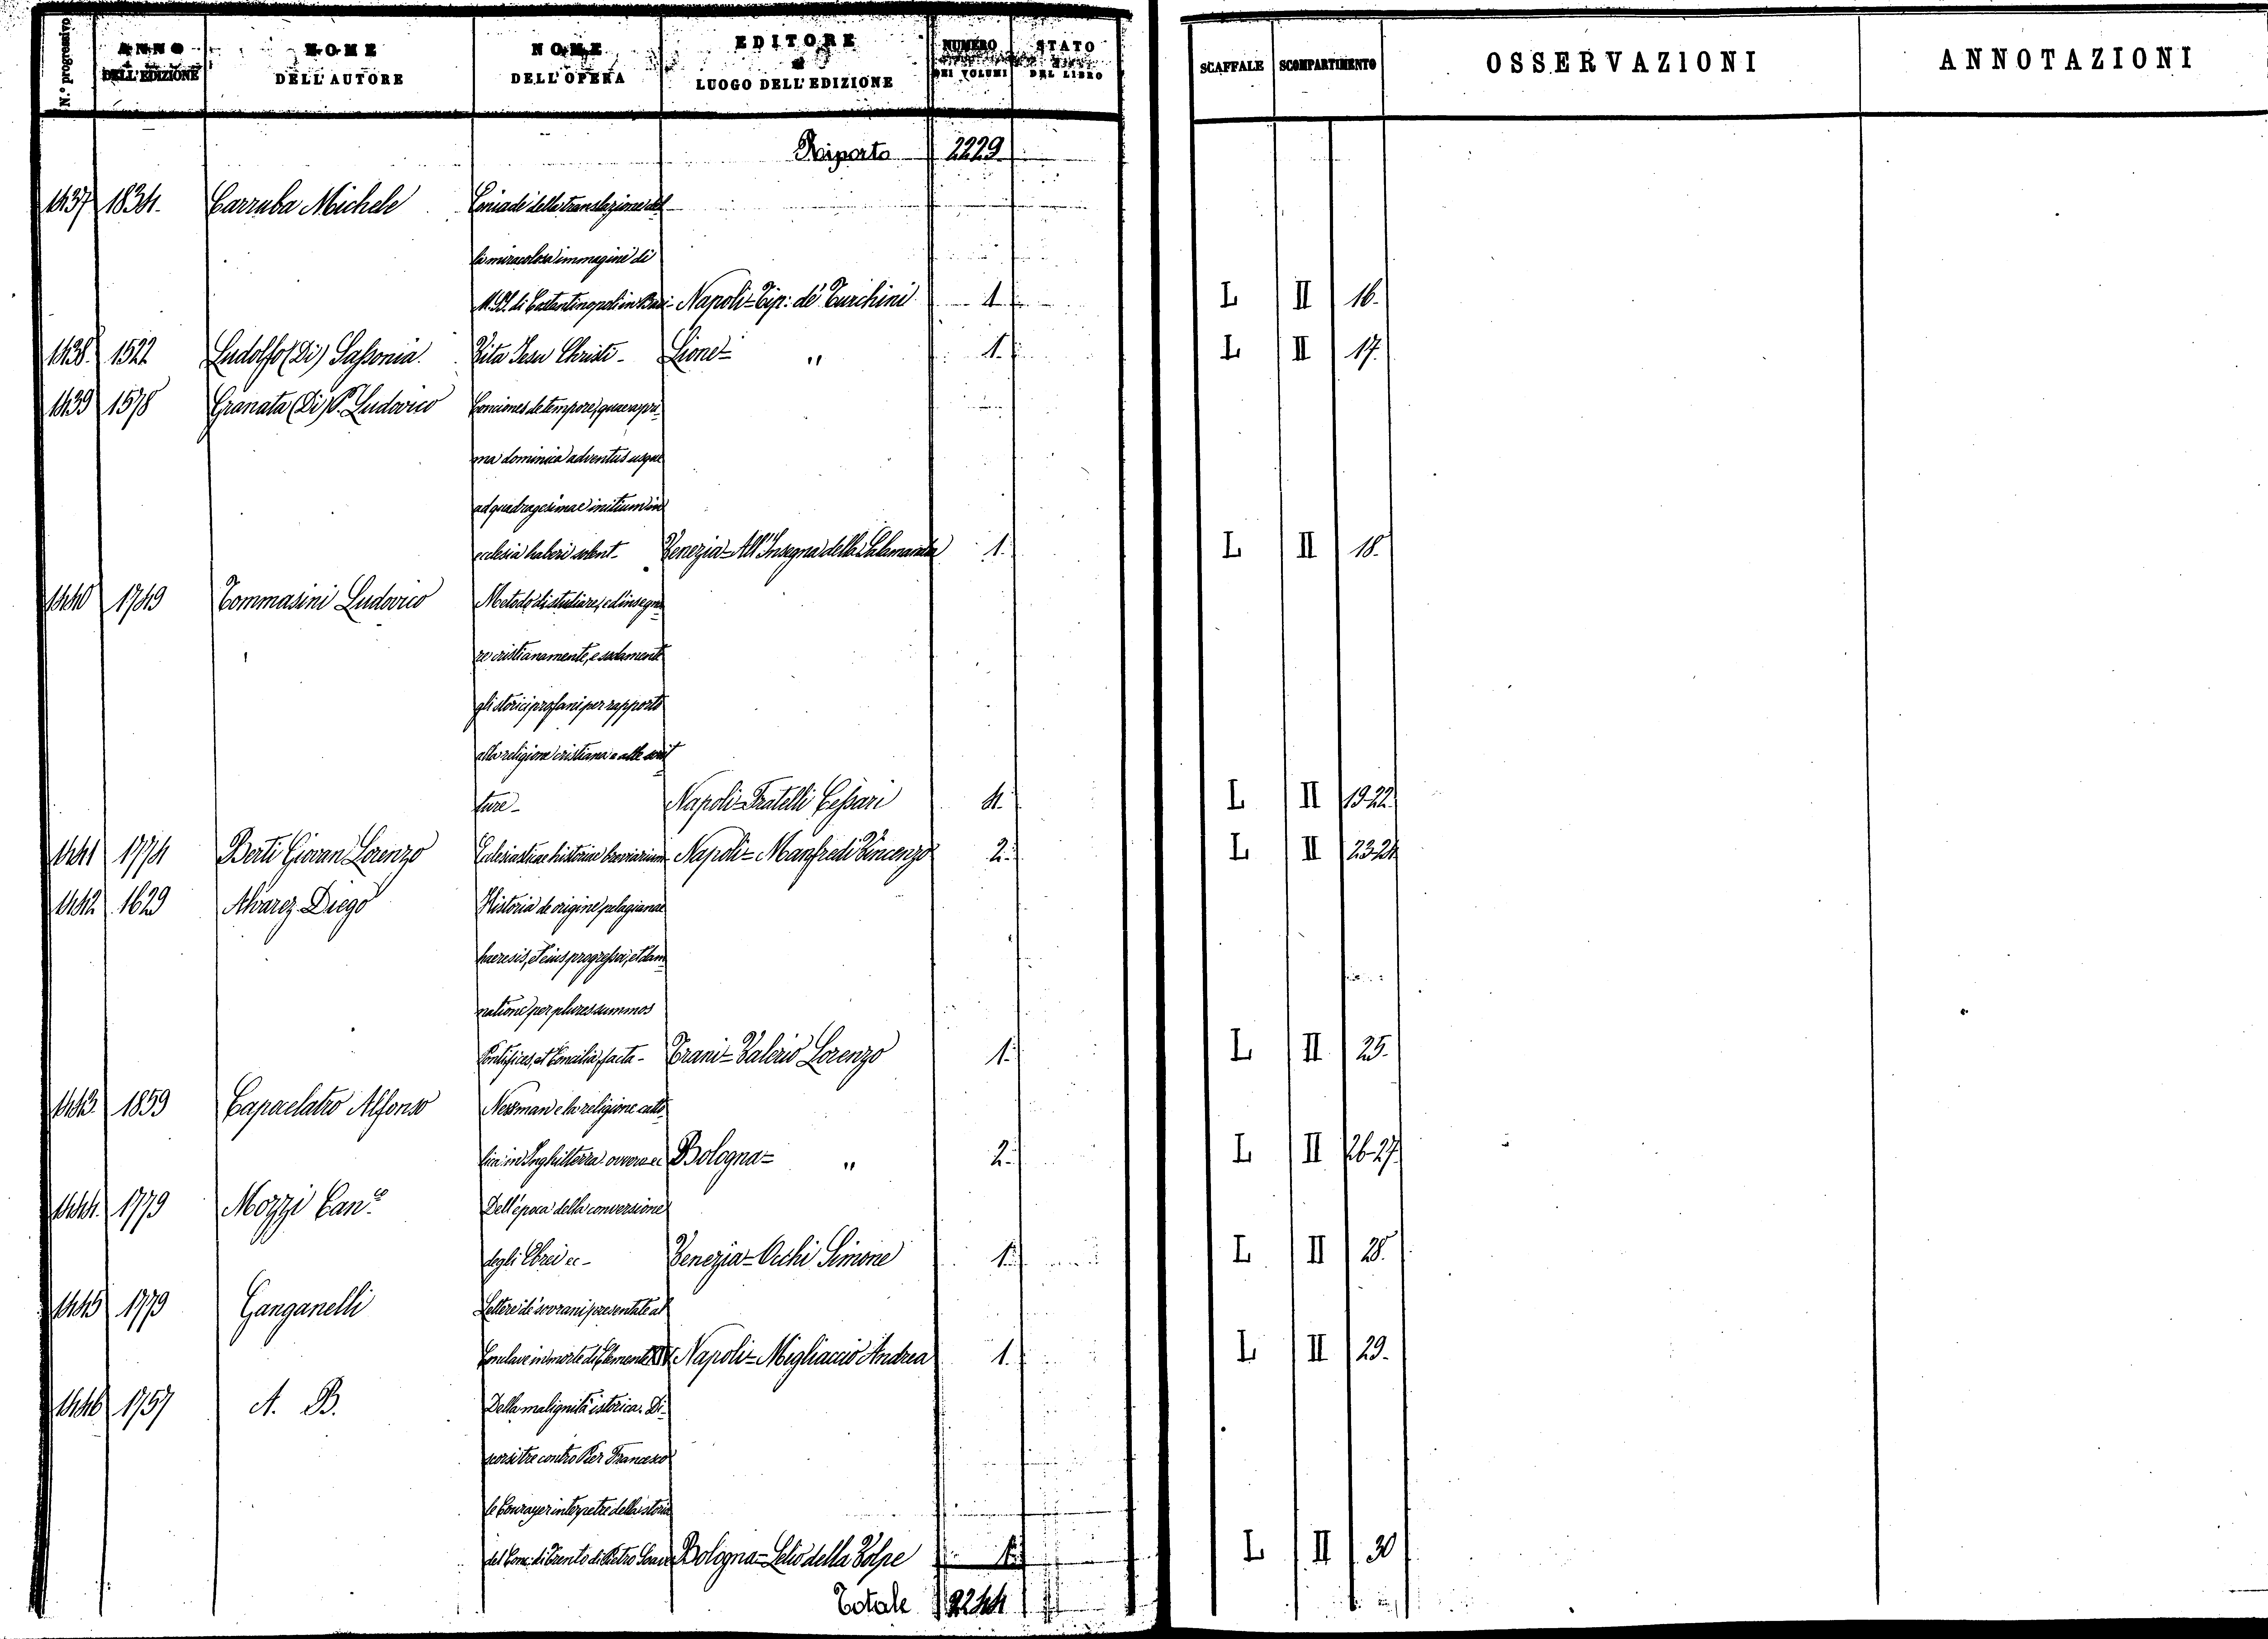 N.º progressivo | ANNO DELL'EDIZIONE | NOME DELL'AUTORE | NOME DELL'OPERA | EDITORE e LUOGO DELL'EDIZIONE | NUMERO DEI VOLUMI | STATO DEL LIBRO | SCAFFALE | SCOMPARTIMENTO | OSSERVAZIONI | ANNOTAZIONI
Riporto 2229
1437 1834. Carruba Michele della translazione del
la miracolosa immagine di
M. SS. di Costantinopoli in Bari- Napoli= Tip: de' Turchini 1. L II 16.
1438. 1522 Ludolfo (Di) Sassonia. Vita Jesu Christi- Lione= " 1. L II 17.
1439 1578 Granata (Di) P. Ludovico Conciones de tempore, quae a pri-
ma dominica adventus usque
ad quadragesimae initium in
ecclesia haberi solent- Venezia= All'Insegna della Salamandra 1. L II 18.
1440 1749 Tommasini Ludovico Metodo di studiare, ed insegna
re cristianamente, e sodamente
gli storici profani per rapporto
alla religione cristiana e alle scrit
ture- Napoli= Fratelli Cessari 4. L II 19-22.
1441 1774 Berti Giovan Lorenzo Ecclesiasticae historiae breviarium- Napoli= Manfredi Vincenzo 2. L II 23-24
1442 1629 Alvarez Diego Historia de origine pelagianae
haeresis, et eius progressu, et dam
natione per plures summos
Pontifices, et Concilia facta- Trani= Valerio Lorenzo 1. L II 25.
1443. 1859 Capecelatro Alfonso Newman e la religione catto-
lica in Inghilterra ovvero ec Bologna= " 2. L II 26-27.
1444. 1779 Mozzi Can.co Dell'epoca della conversione
degli Ebrei ec- Venezia= Occhi Simone 1. L II 28.
1445 1779 Ganganelli Lettere de' sovrani presentate al
Conclave in morte di Clemente XIV Napoli= Migliaccio Andrea 1. L II 29.
1446 1757 A. B. Della malignità istorica. Di-
scorsi tre contro Pier Francesco
le Courayer interpetre della storia
del Conc: di Trento di Pietro Soave Bologna= Lelio della Volpe 1. L II 30
Totale 2244